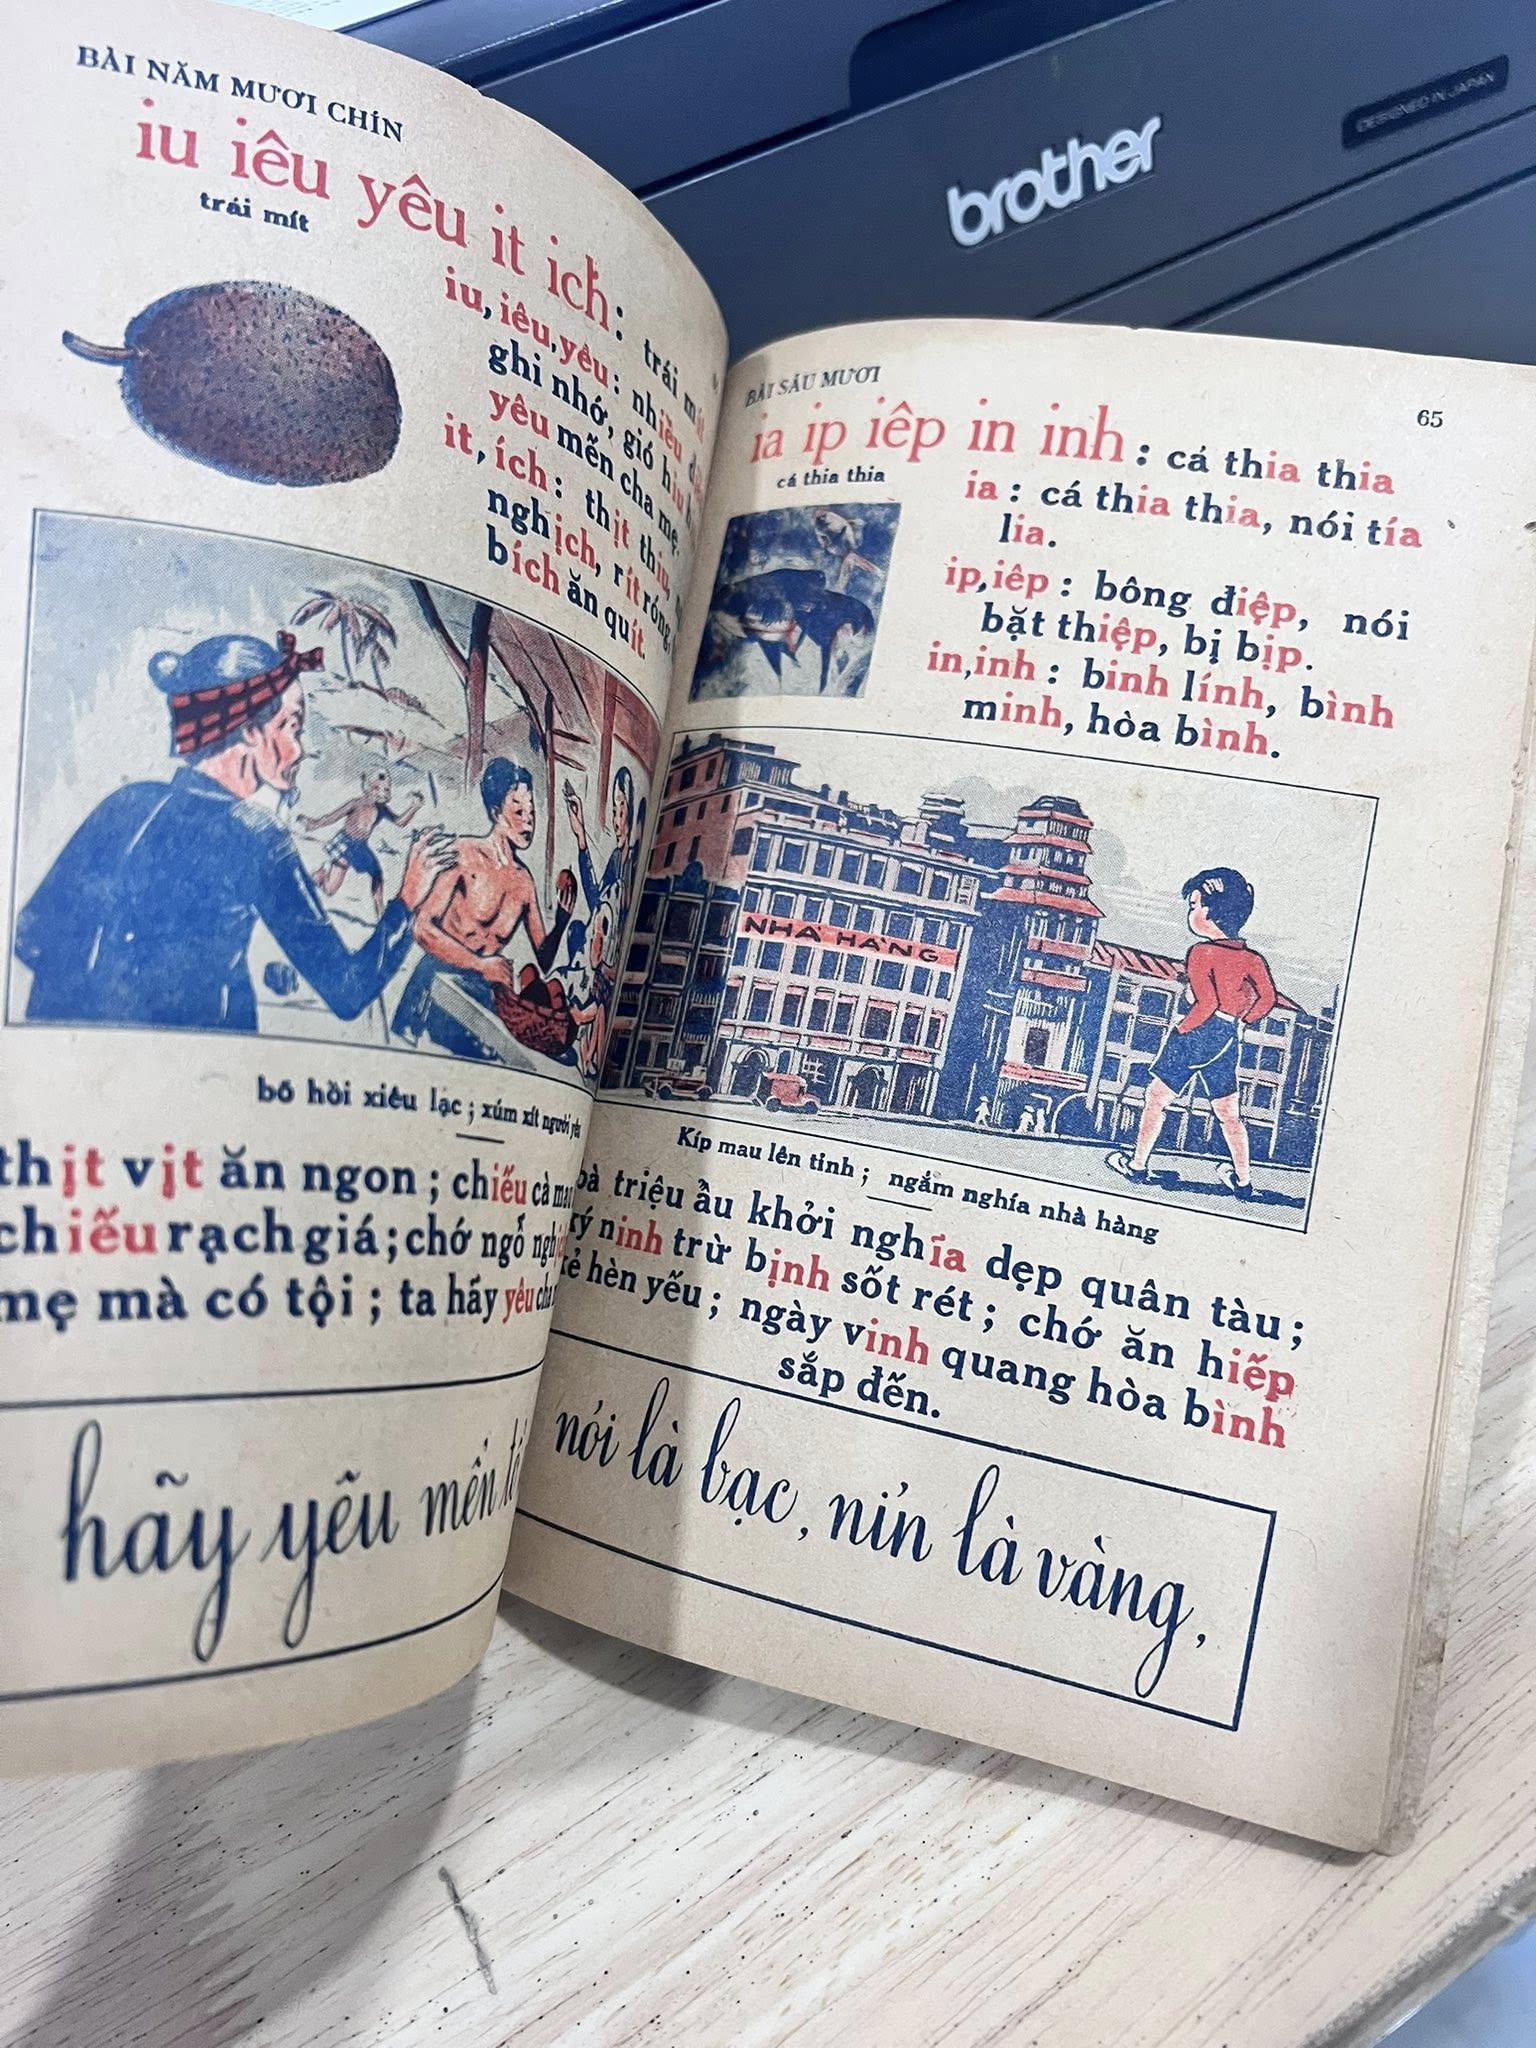 BÀI NĂM MƯƠI CHÍN
iu iêu yêu it ich:
trái mít
trái mít
iu, iêu, yêu: nhiều
ghi nhớ, gió hiu
yêu mến cha mẹ.
it, ích: thịt thiu,
nghịch, rít róng
bích ăn quít.
bồ hồi xiêu lạc; xúm xít người yêu
thịt vịt ăn ngon; chiếu cà mau
chiếu rạch giá; chớ ngỗ
mẹ mà có tội; ta hãy yêu cha
hãy yêu mến
BÀI SÁU MƯƠI
65
ia ip iêp in inh: cá thia thia
cá thia thia
ia: cá thia thia, nói tía
lia.
ip, iêp: bông điệp, nói
bặt thiệp, bị bịp.
in, inh: binh lính, bình
minh, hòa bình.
NHÀ HÀNG
Kíp mau lên tỉnh; ngắm nghía nhà hàng
bà triệu ẩu khởi nghĩa dẹp quân tàu;
ký ninh trừ bịnh sốt rét; chớ ăn hiếp
kẻ hèn yếu; ngày vinh quang hòa bình
sắp đến.
nói là bạc, nín là vàng,
brother
DESIGNED IN JAPAN